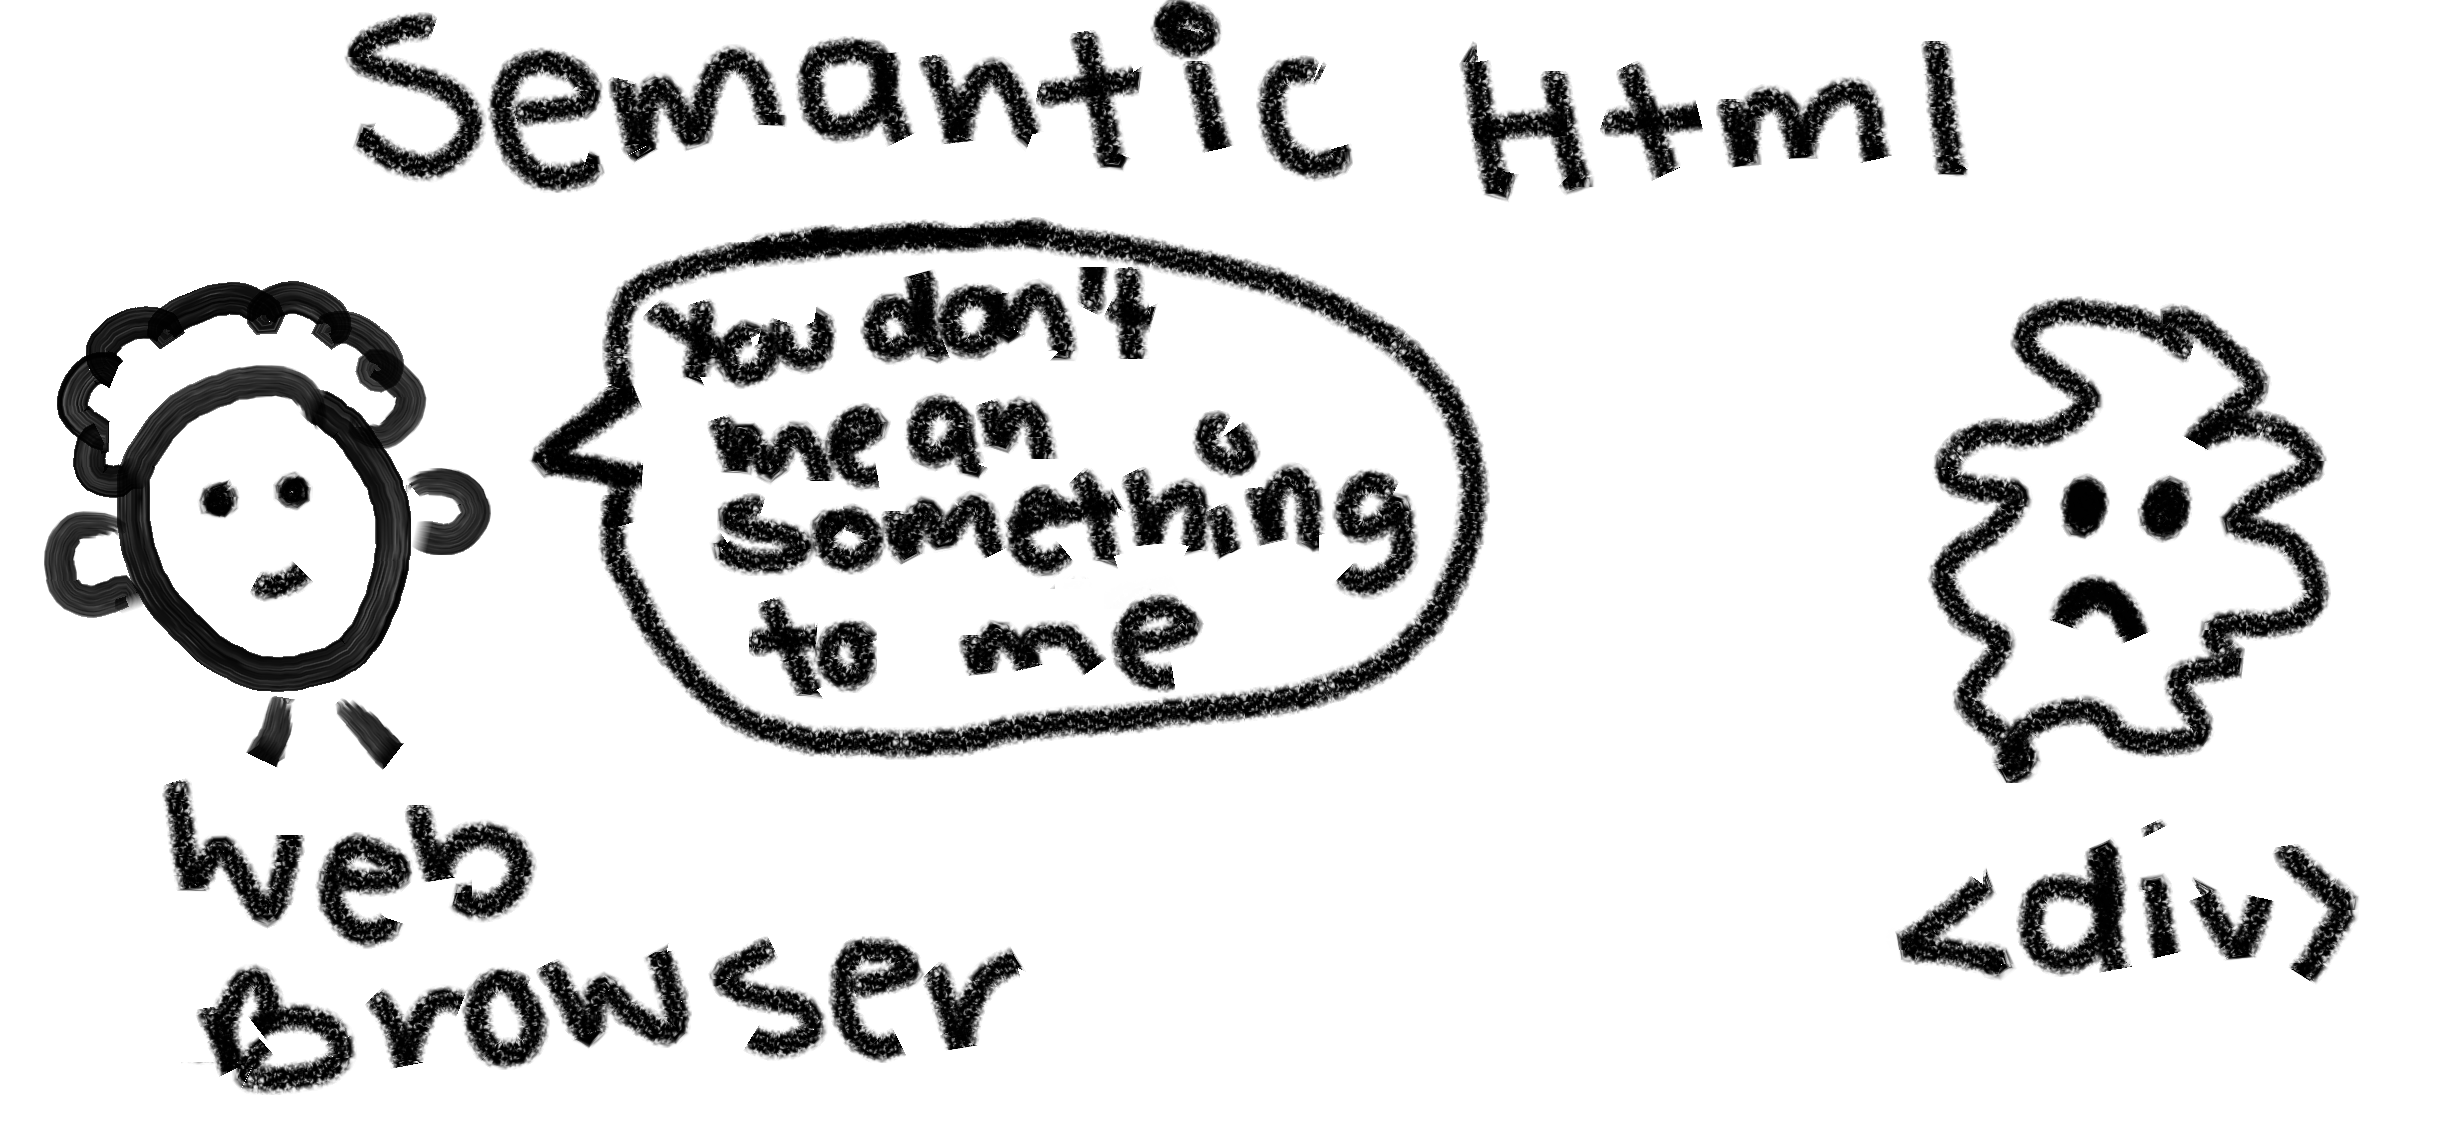 Semantic Html
You don't
mean
something
to me
Web
Browser
<div>